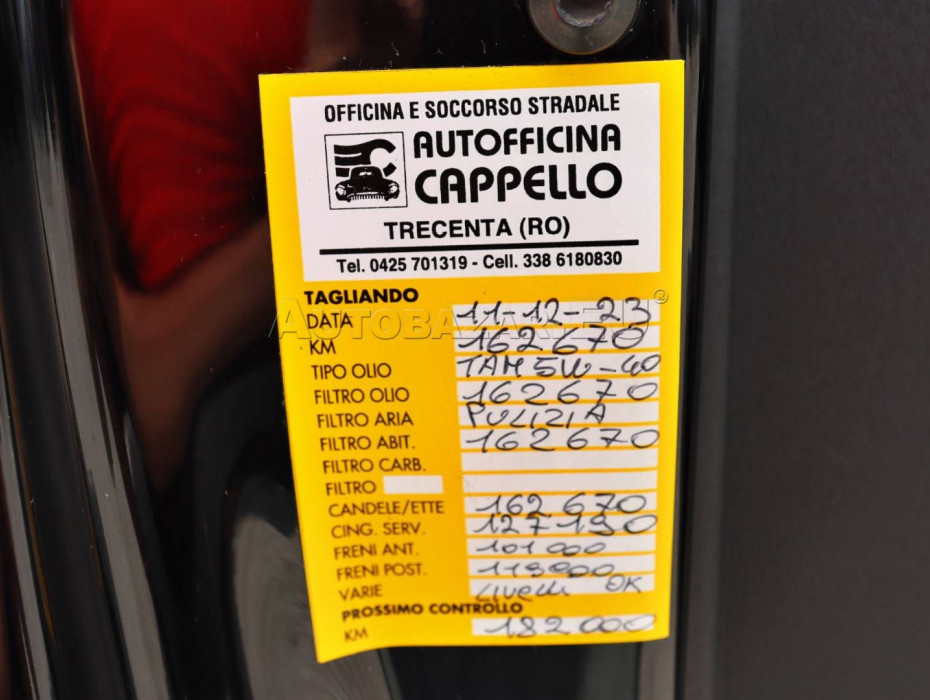 OFFICINA E SOCCORSO STRADALE
AUTOFFICINA
CAPPELLO
TRECENTA (RO)
Tel. 0425 701319 - Cell. 338 6180830
TAGLIANDO
DATA 11-12-23
KM 162670
TIPO OLIO TAM 5W-40
FILTRO OLIO 162670
FILTRO ARIA PULIZIA
FILTRO ABIT. 162670
FILTRO CARB.
FILTRO
CANDELE/ETTE 162670
CING. SERV. 127190
FRENI ANT. 101000
FRENI POST. 119000
VARIE Livelli OK
PROSSIMO CONTROLLO
KM 182000
AUTOBAZAR.EU®